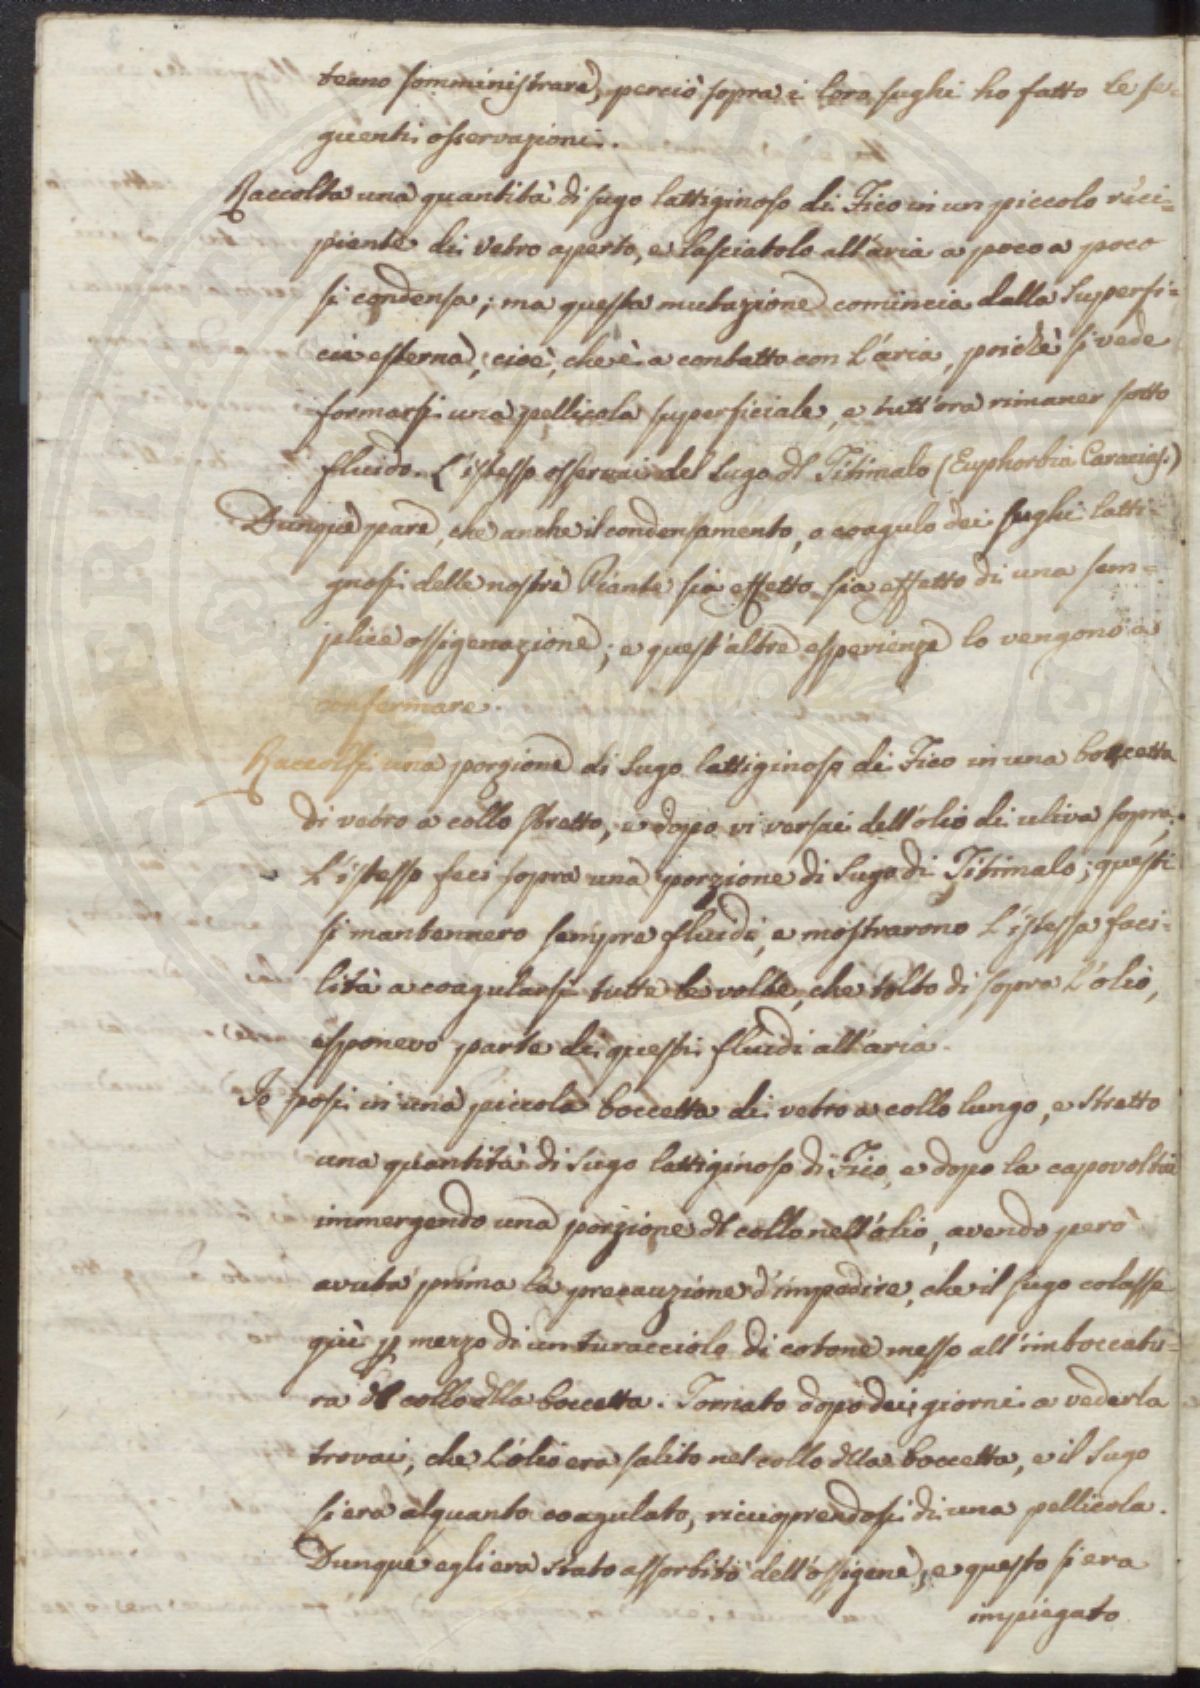 teano somministrare, perciò sopra i loro sughi ho fatto le se=
guenti osservazioni.
Raccolta una quantità di sugo lattiginoso di Fico in un piccolo reci=
piente di vetro aperto, e lasciatolo all'aria a poco a poco
si condensa; ma questa mutazione comincia dalla superfi=
cie esterna, cioè, che è a contatto con l'aria, poichè si vede
formarsi una pellicola superficiale, e tutt'ora rimaner sotto
fluido. L'istesso osservai del Sugo dl Titimalo (Euphorbia Caracias.)
Dunque pare, che anche il condensamento, o coagulo dei sughi latti=
gnosi delle nostre Piante sia effetto sia effetto di una sem=
plice ossigenazione; e quest'altre esperienze lo vengono a
confermare.
Raccolsi una porzione di Sugo lattiginoso di Fico in una boccetta
di vetro a collo stretto, e dopo vi versai dell'olio di uliva sopra;
L'istesso feci sopra una porzione di Sugo di Titimalo; questi
si mantennero sempre fluidi, e mostrarono l'istessa faci=
lità a coagularsi tutte le volte, che tolto di sopra l'olio,
esponevo parte di questi fluidi all'aria.
Io posi in una piccola boccetta di vetro a collo lungo, e stretto
una quantità di sugo lattiginoso di Fico, e dopo la capovoltai
immergendo una porzione dl collo nell'olio, avendo però
avuta prima la precauzione d'impedire, che il sugo colasse
giù p mezzo di un turacciolo di cotone messo all'imboccatu=
ra dl collo dlla boccetta. Tornato dopo dei giorni a vederla
trovai, che l'olio era salito nel collo dlla boccetta, e il Sugo
si era alquanto coagulato, ricuoprendosi di una pellicola.
Dunque egli era stato assorbito dell'ossigene, e questo si era
impiegato